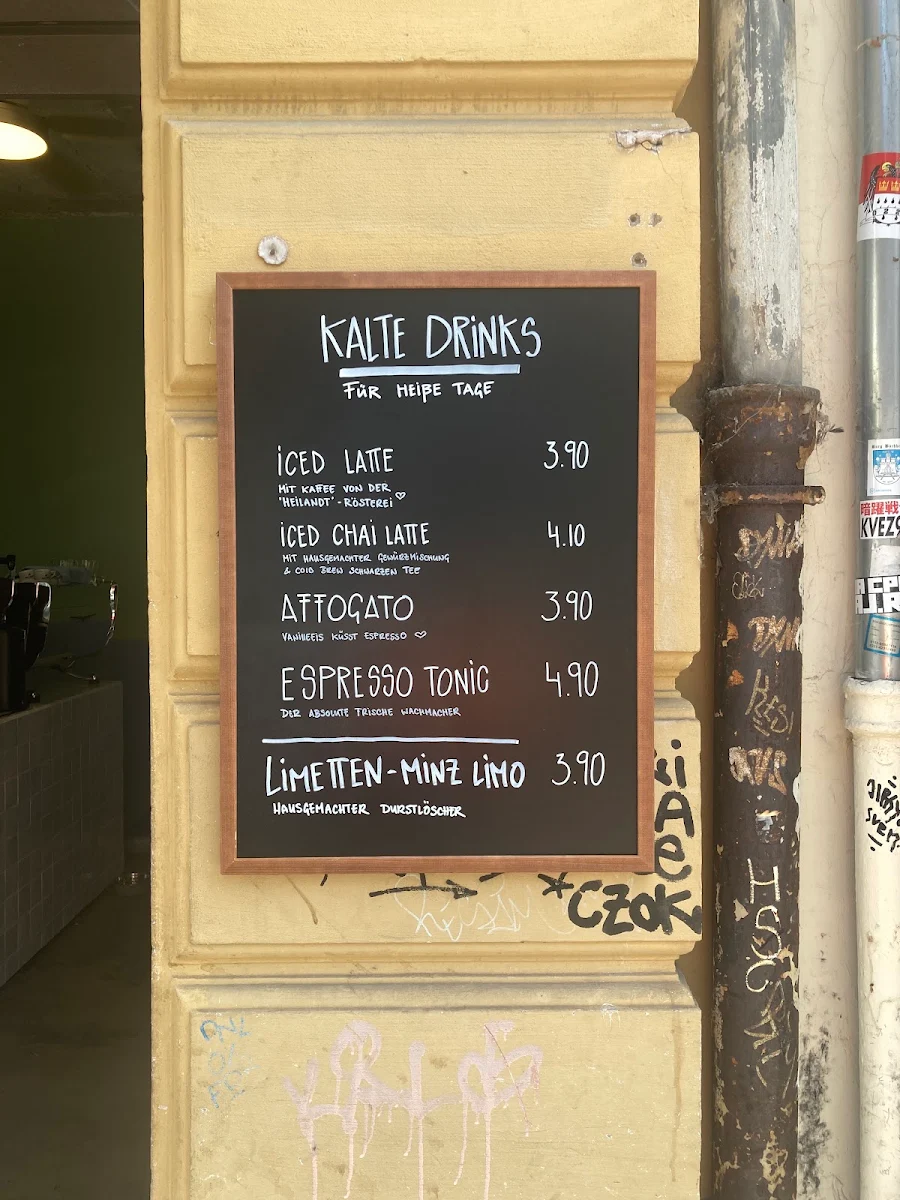 KALTE DRiNKS
FÜR HEIßE TAGE
iCED LATTE 3.90
MIT KAFFEE VON DER
'HEILANDT'-RÖSTEREI ♡
iCED CHAi LATTE 4.10
MIT HAUSGEMACHTER GEWÜRZMISCHUNG
& COLD BREW SCHWARZEN TEE
AFFOGATO 3.90
VANILLEEIS KÜSST ESPRESSO ♡
ESPRESSO TONiC 4.90
DER ABSOLUTE FRISCHE WACHMACHER
LiMETTEN-MiNZ LiMO 3.90
HAUSGEMACHTER DURSTLÖSCHER
CZOK
KVEZ
HSC